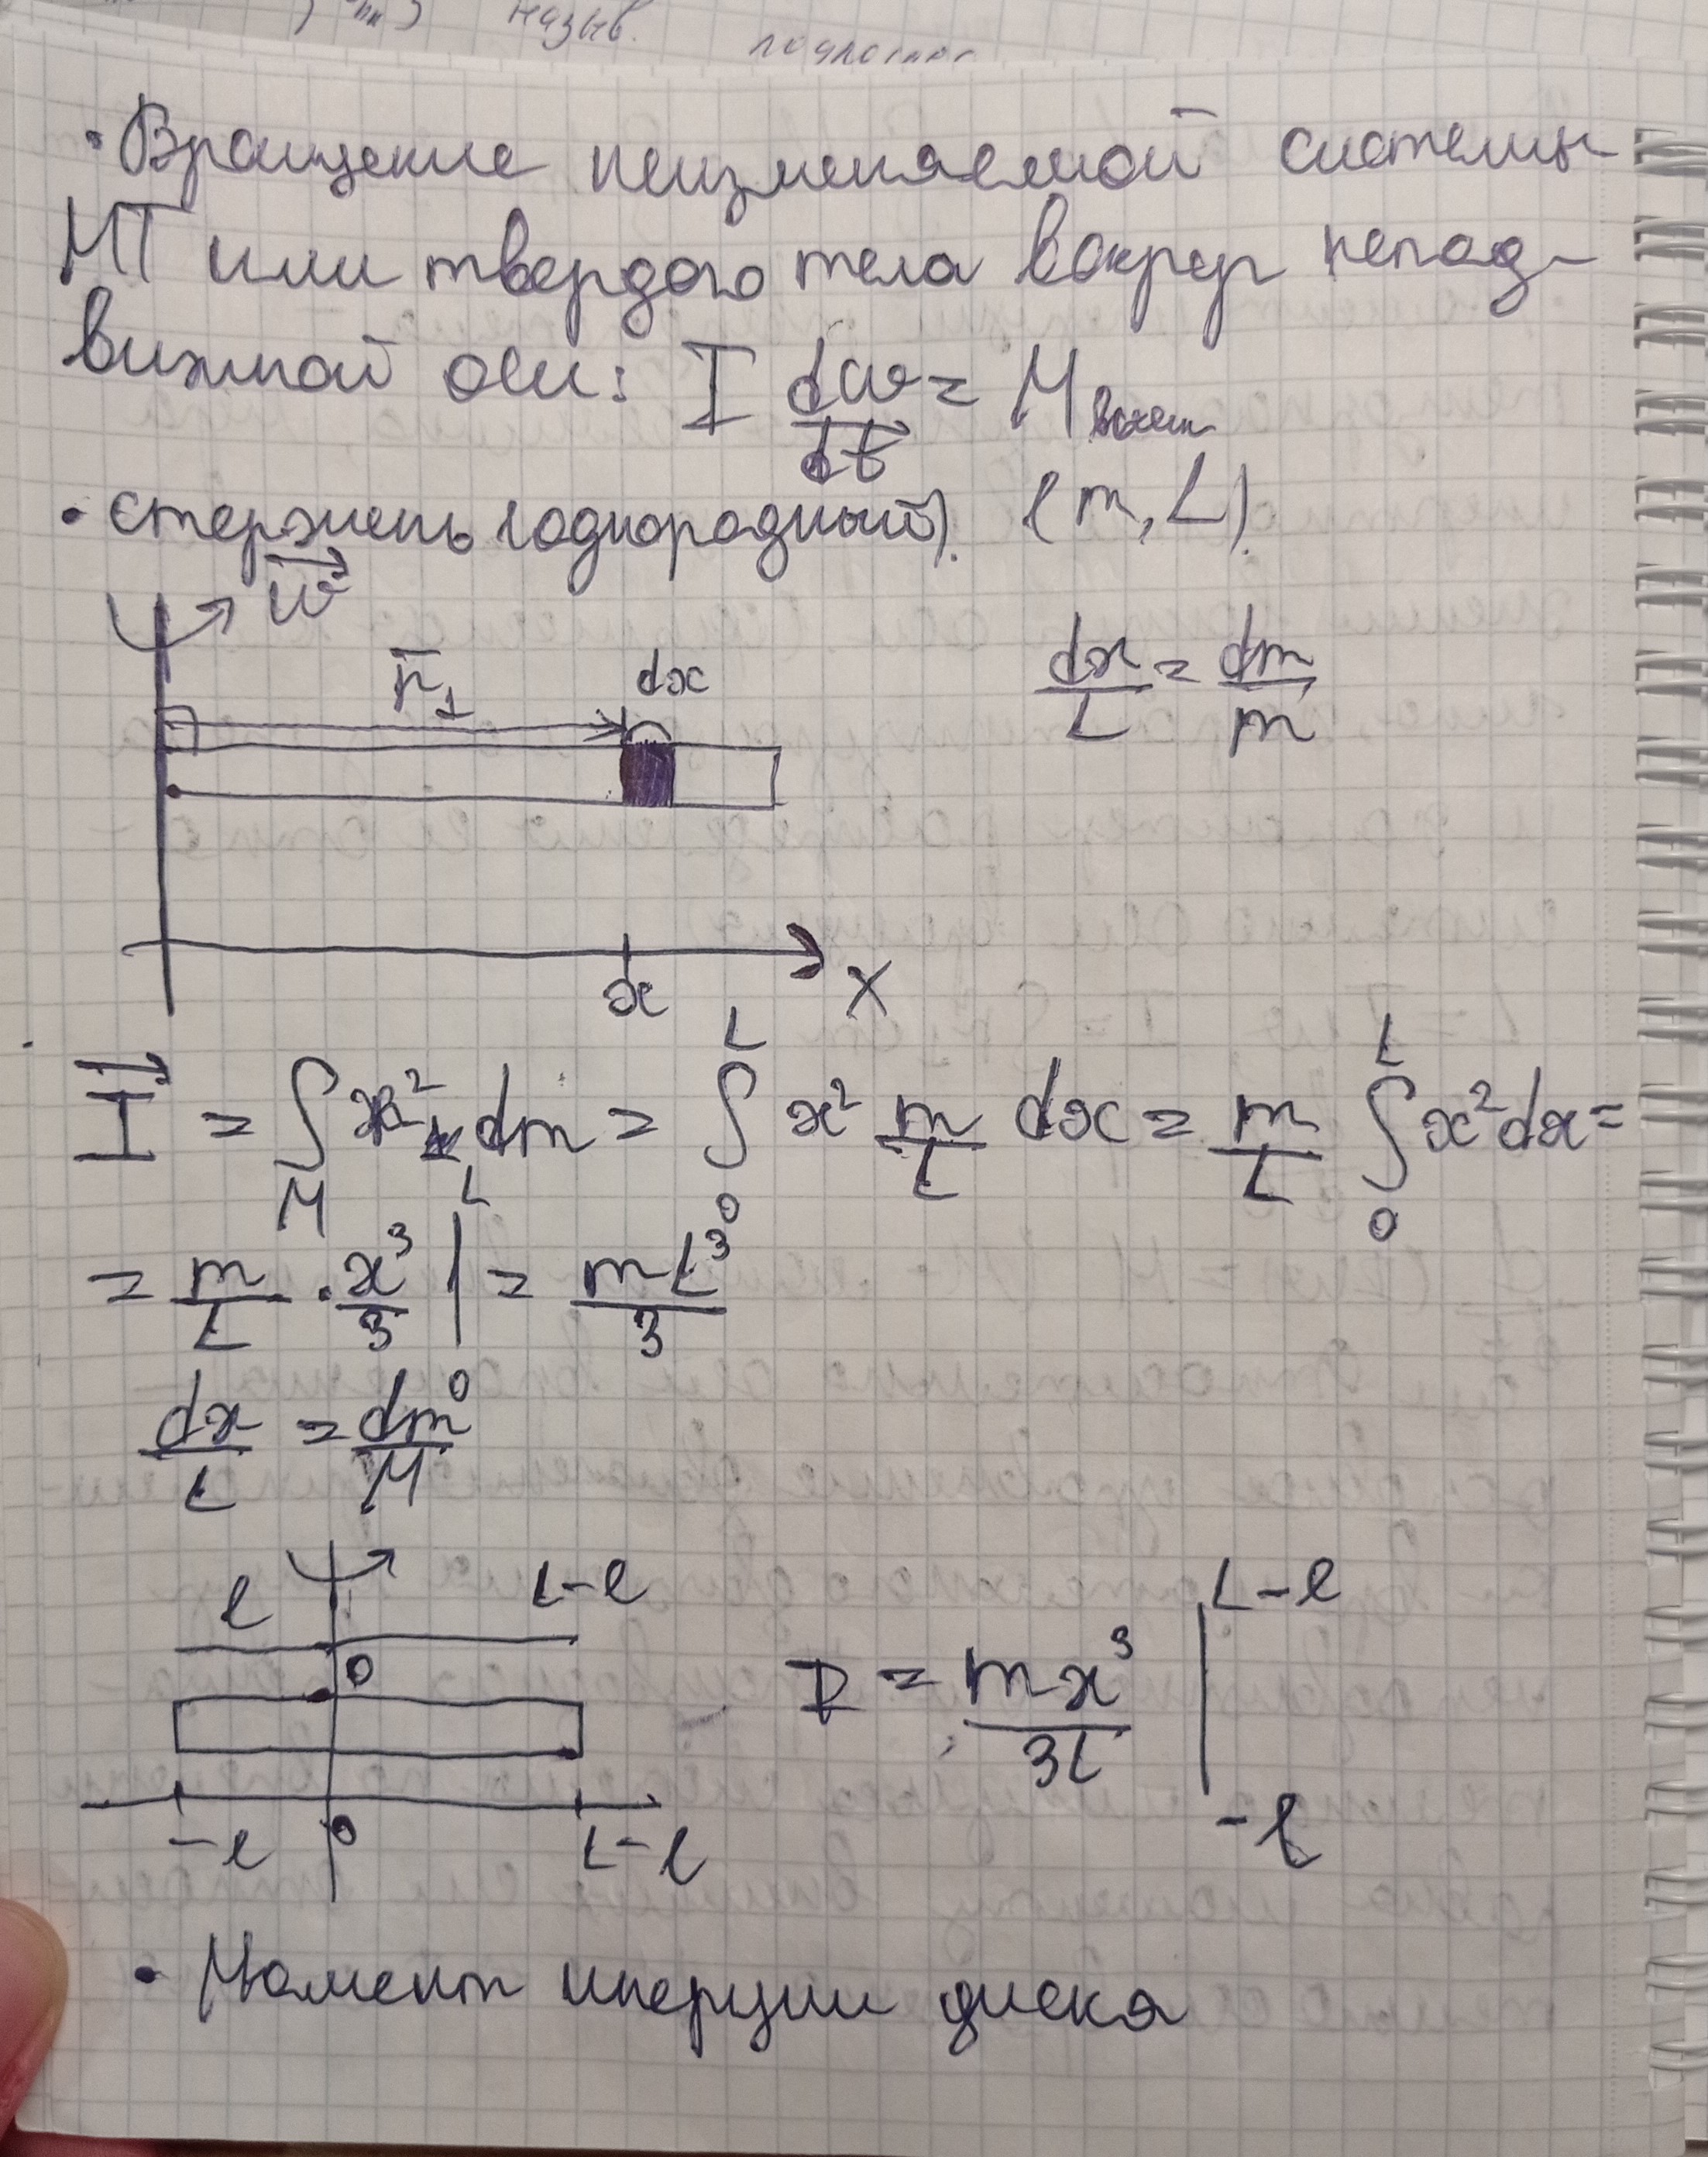 назыв.
• Вращение неизменяемой системы
МТ или твердого тела вокруг непод-
вижной оси: I dω/dt = M внеш
• стержень (однородный). (m, L).
ω⃗
r̄⊥ dx
dx/L = dm/m
x X
I⃗ = ∫_M x² dm = ∫_0^L x² m/L dx = m/L ∫_0^L x² dx =
= m/L · x³/3 |_0^L = mL³/3
dx/L = dm/M
l L-l
0
I = mx³/3L |_{-l}^{L-l}
-l 0 L-l
• Момент инерции диска